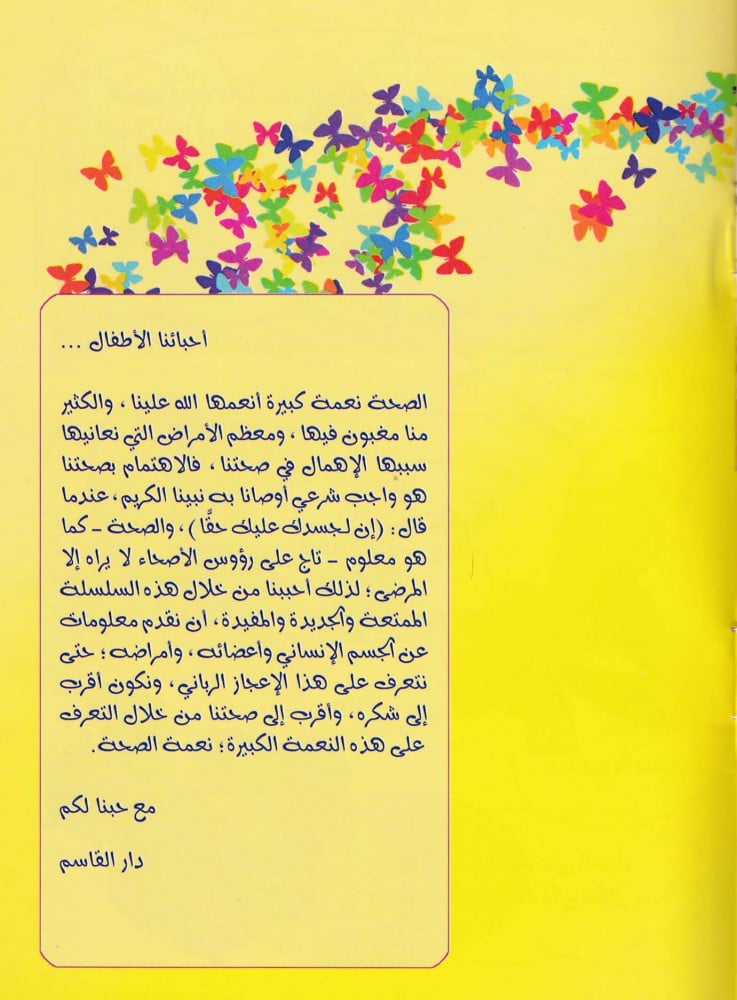 أحبائنا الأطفال ...
الصحة نعمة كبيرة أنعمها الله علينا ، والكثير
منا مغبون فيها ، ومعظم الأمراض التي نعانيها
سببها الإهمال في صحتنا ، فالاهتمام بصحتنا
هو واجب شرعي أوصانا به نبينا الكريم ، عندما
قال: (إن لجسدك عليك حقًّا) ، والصحة - كما
هو معلوم - تاج على رؤوس الأصحاء لا يراه إلا
المرضى ؛ لذلك أحببنا من خلال هذه السلسلة
الممتعة والجديدة والمفيدة، أن نقدم معلومات
عن الجسم الإنساني وأعضائه ، وأمراضه ؛ حتى
نتعرف على هذا الإعجاز الرباني ، ونكون أقرب
إلى شكره ، وأقرب إلى صحتنا من خلال التعرف
على هذه النعمة الكبيرة ؛ نعمة الصحة .
مع حبنا لكم
دار القاسم